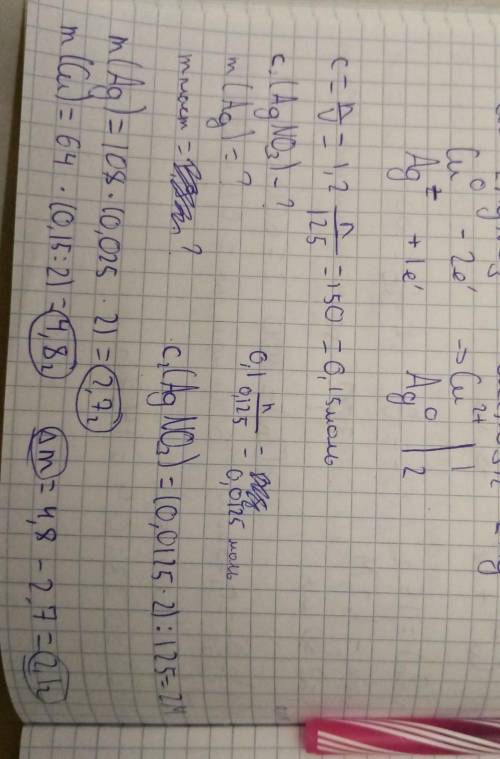 Cu⁰ - 2e' → Cu²⁺ | 1
Ag⁺ + 1e' Ag⁰ | 2
c = n/V = 1,2 n/125 = 150 = 0,15 моль
c₁(AgNO₃) - ?
m(Ag) = ?
0,1 n/0,125 = 0,0125 моль
c₂(AgNO₃) = (0,0125 · 2) : 125 = 2
m(Ag) = 108 · (0,025 · 2) = 2,7г
m(Cu) = 64 · (0,15 : 2) = 4,8г
Δm = 4,8 - 2,7 = 2,1г